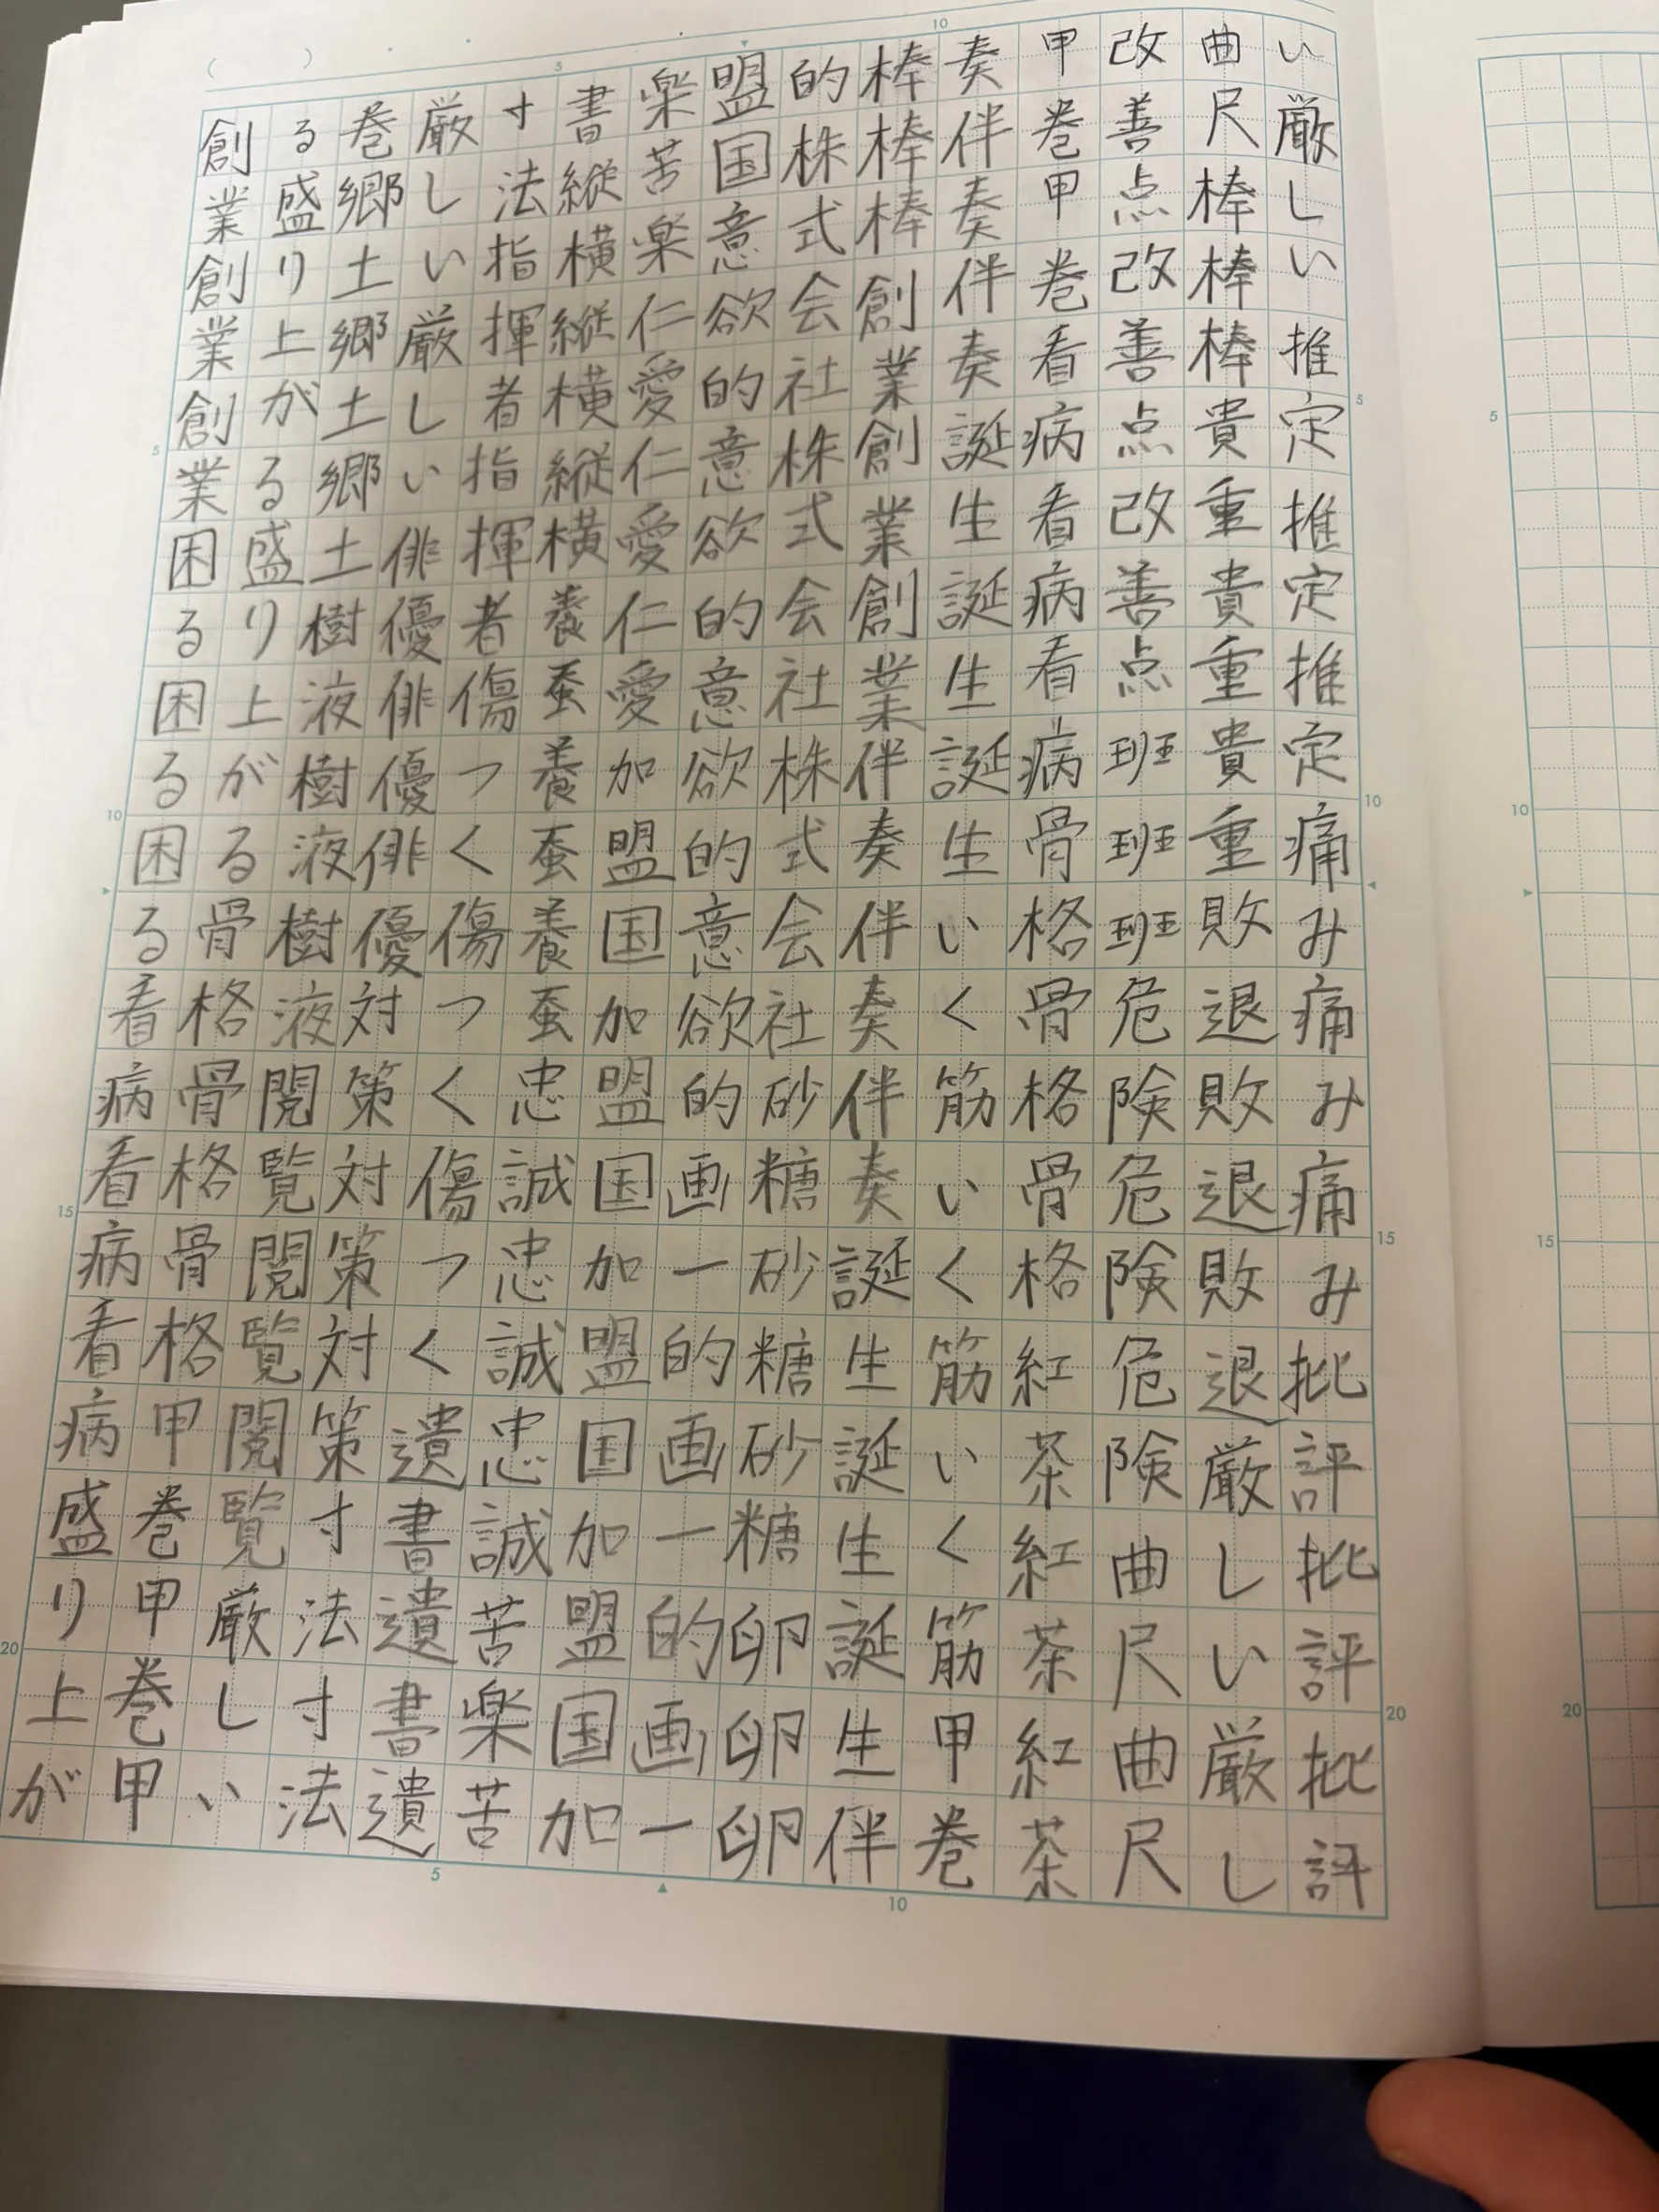 い厳しい推定推定推定痛み痛み痛み批評批評批評
曲尺棒棒棒貴重貴重貴重敗退敗退敗退厳しい厳し
改善点改善点改善点班班班危険危険危険曲尺曲尺
甲巻甲巻看病看病看病骨格骨格骨格紅茶紅茶紅茶
奏伴奏伴奏誕生誕生誕生いく筋いく筋いく筋甲巻
棒棒棒創業創業創業伴奏伴奏伴奏誕生誕生誕生伴
的株式会社株式会社株式会社砂糖砂糖砂糖卵卵卵
盟国意欲的意欲的意欲的意欲的画一的画一的画一
楽苦楽仁愛仁愛仁愛加盟国加盟国加盟国加盟国加
書縦横縦横縦横養蚕養蚕養蚕忠誠忠誠忠誠苦楽苦
寸法指揮者指揮者傷つく傷つく傷つく遺書遺書遺
厳しい厳しい俳優俳優俳優対策対策対策寸法寸法
巻郷土郷土郷土樹液樹液樹液閲覧閲覧閲覧厳しい
る盛り上がる盛り上がる骨格骨格骨格甲巻甲巻甲
創業創業創業困る困る困る看病看病看病盛り上が
5
10
5
10
15
20
5
10
15
20
5
10
5
10
15
20